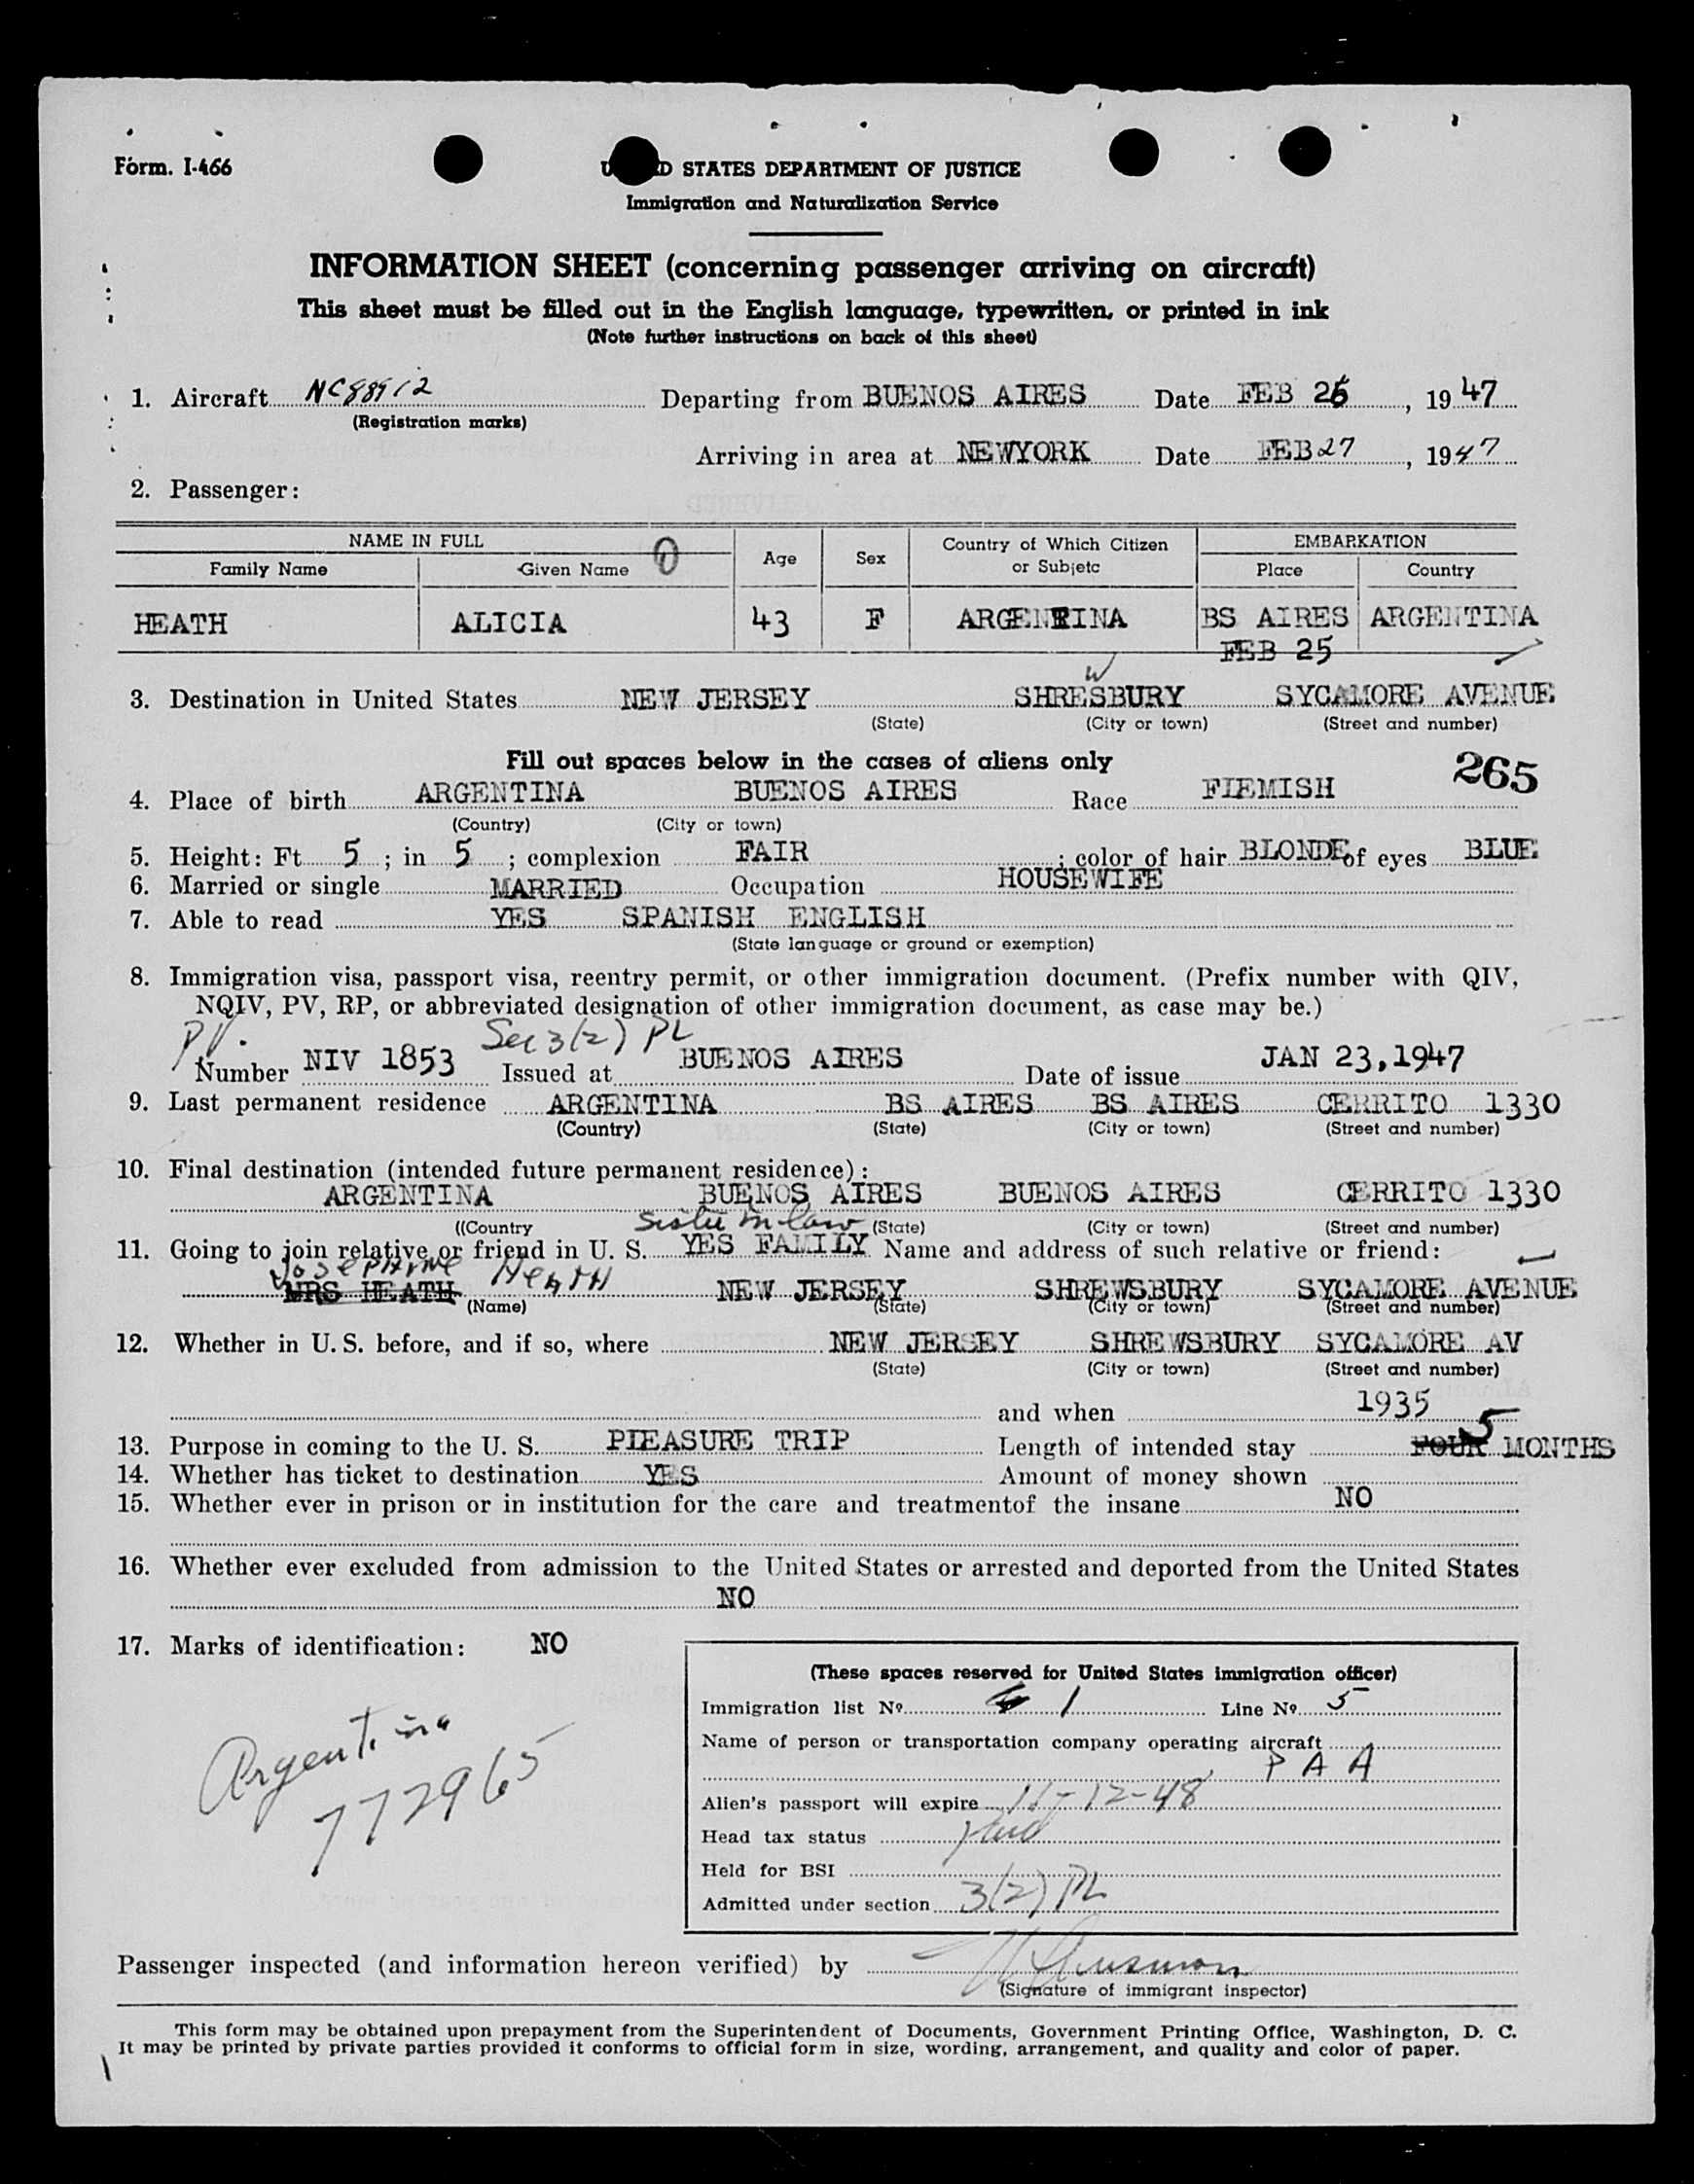 Form. I-466
STATES DEPARTMENT OF JUSTICE
Immigration and Naturalization Service
INFORMATION SHEET (concerning passenger arriving on aircraft)
This sheet must be filled out in the English language, typewritten, or printed in ink
(Note further instructions on back of this sheet)
1. Aircraft NC88912 Departing from BUENOS AIRES Date FEB 26, 1947
(Registration marks)
Arriving in area at NEWYORK Date FEB 27, 1947
2. Passenger:
NAME IN FULL Age Sex Country of Which Citizen or Subjetc EMBARKATION
Family Name Given Name Place Country
HEATH ALICIA 43 F ARGENTINA BS AIRES ARGENTINA
FEB 25
W
3. Destination in United States NEW JERSEY SHRESBURY SYCAMORE AVENUE
(State) (City or town) (Street and number)
Fill out spaces below in the cases of aliens only 265
4. Place of birth ARGENTINA BUENOS AIRES Race FIEMISH
(Country) (City or town)
5. Height: Ft 5 ; in 5 ; complexion FAIR ; color of hair BLONDE of eyes BLUE
6. Married or single MARRIED Occupation HOUSEWIFE
7. Able to read YES SPANISH ENGLISH
(State language or ground or exemption)
8. Immigration visa, passport visa, reentry permit, or other immigration document. (Prefix number with QIV,
NQIV, PV, RP, or abbreviated designation of other immigration document, as case may be.)
PV. Sec 3(2) PL
Number NIV 1853 Issued at BUENOS AIRES Date of issue JAN 23,1947
9. Last permanent residence ARGENTINA BS AIRES BS AIRES CERRITO 1330
(Country) (State) (City or town) (Street and number)
10. Final destination (intended future permanent residence):
ARGENTINA BUENOS AIRES BUENOS AIRES CERRITO 1330
((Country (State) (City or town) (Street and number)
Sister in law
11. Going to join relative or friend in U. S. YES FAMILY Name and address of such relative or friend:
Josephine Heath
MRS HEATH NEW JERSEY SHREWSBURY SYCAMORE AVENUE
(Name) (State) (City or town) (Street and number)
12. Whether in U. S. before, and if so, where NEW JERSEY SHREWSBURY SYCAMORE AV
(State) (City or town) (Street and number)
and when 1935
13. Purpose in coming to the U. S. PIEASURE TRIP Length of intended stay FOUR 5 MONTHS
14. Whether has ticket to destination YES Amount of money shown
15. Whether ever in prison or in institution for the care and treatmentof the insane NO
16. Whether ever excluded from admission to the United States or arrested and deported from the United States
NO
17. Marks of identification: NO
Argentina
772965
(These spaces reserved for United States immigration officer)
Immigration list Nº 1 Line Nº 5
Name of person or transportation company operating aircraft
P A A
Alien's passport will expire 11-12-48
Head tax status Paid
Held for BSI
Admitted under section 3(2) PL
Passenger inspected (and information hereon verified) by
(Signature of immigrant inspector)
This form may be obtained upon prepayment from the Superintendent of Documents, Government Printing Office, Washington, D. C.
It may be printed by private parties provided it conforms to official form in size, wording, arrangement, and quality and color of paper.